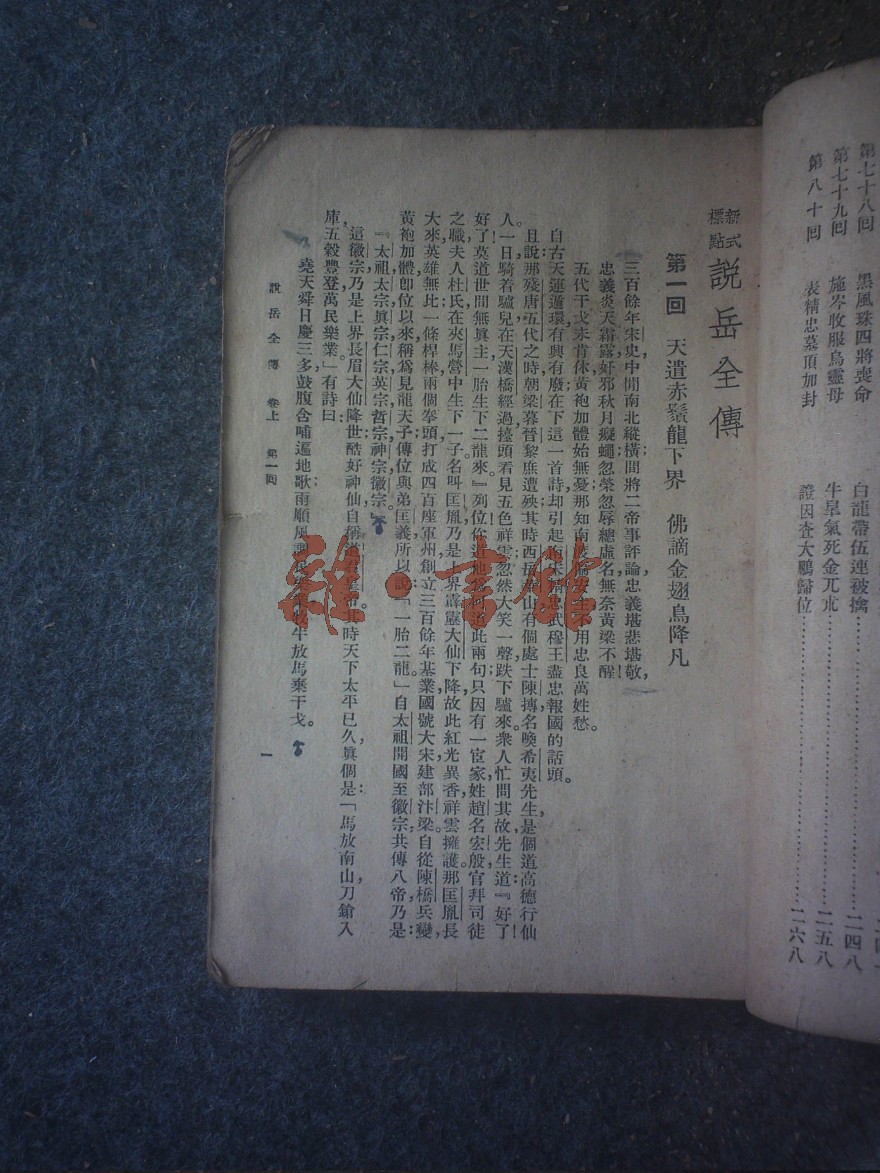 第七十八回　黑風珠四將喪命　白龍帶伍連被擒
第七十九回　施岑收服烏靈母　牛皐氣死金兀朮……二五八
第八十回　表精忠墓頂加封　證因査大鵬歸位……二六八
新式標點 說岳全傳
第一回　天遣赤鬚龍下界　佛謫金翅鳥降凡
三百餘年宋史中閒南北縱橫閒將二帝事評論忠義堪悲堪敬
忠義炎天霜露奸邪秋月癡蠅忽榮忽辱總虛名無奈黃梁不醒
五代干戈未肯休黃袍加體始無憂那知南渡偏安主不用忠良萬姓愁。
自古天運循環有興有廢在下這一首詩却引起 忠武穆王盡忠報國的話頭。
且說那殘唐五代之時朝梁暮晉黎庶遭殃其時西岳華山有個處士陳摶名喚希夷先生，是個道高德行仙
人一日騎着驢兒在天漢橋經過擡頭看見五色祥雲忽然大笑一聲跌下驢來。衆人忙問其故先生道：『好了！
好了！莫道世間無眞主一胎生下二龍來。』列位你道 此兩句只因有一宦家姓趙名宏殷官拜司徒
之職夫人杜氏在夾馬營中生下一子名叫匡胤乃是上界霹靂大仙下降故此紅光異香祥雲擁護那匡胤長
大來英雄無比一條桿棒兩個拳頭打成四百座軍州創立三百餘年基業國號大宋建都汴梁。自從陳橋兵變，
黃袍加體卽位以來稱爲見龍天子傳位與弟匡義所以說：「一胎二龍」自太祖開國至徽宗共傳八帝乃是：
『太祖太宗眞宗仁宗英宗哲宗神宗徽宗。』
這徽宗乃是上界長眉大仙降世酷好神仙自稱道君皇帝。其時天下太平已久眞個是：「馬放南山刀鎗入
庫，五穀豐登萬民樂業」有詩曰：
堯天舜日慶三多，鼓腹含哺遍地歌雨順風調 牧牛放馬棄干戈。
說岳全傳　卷上　第一回
一
雜·書館